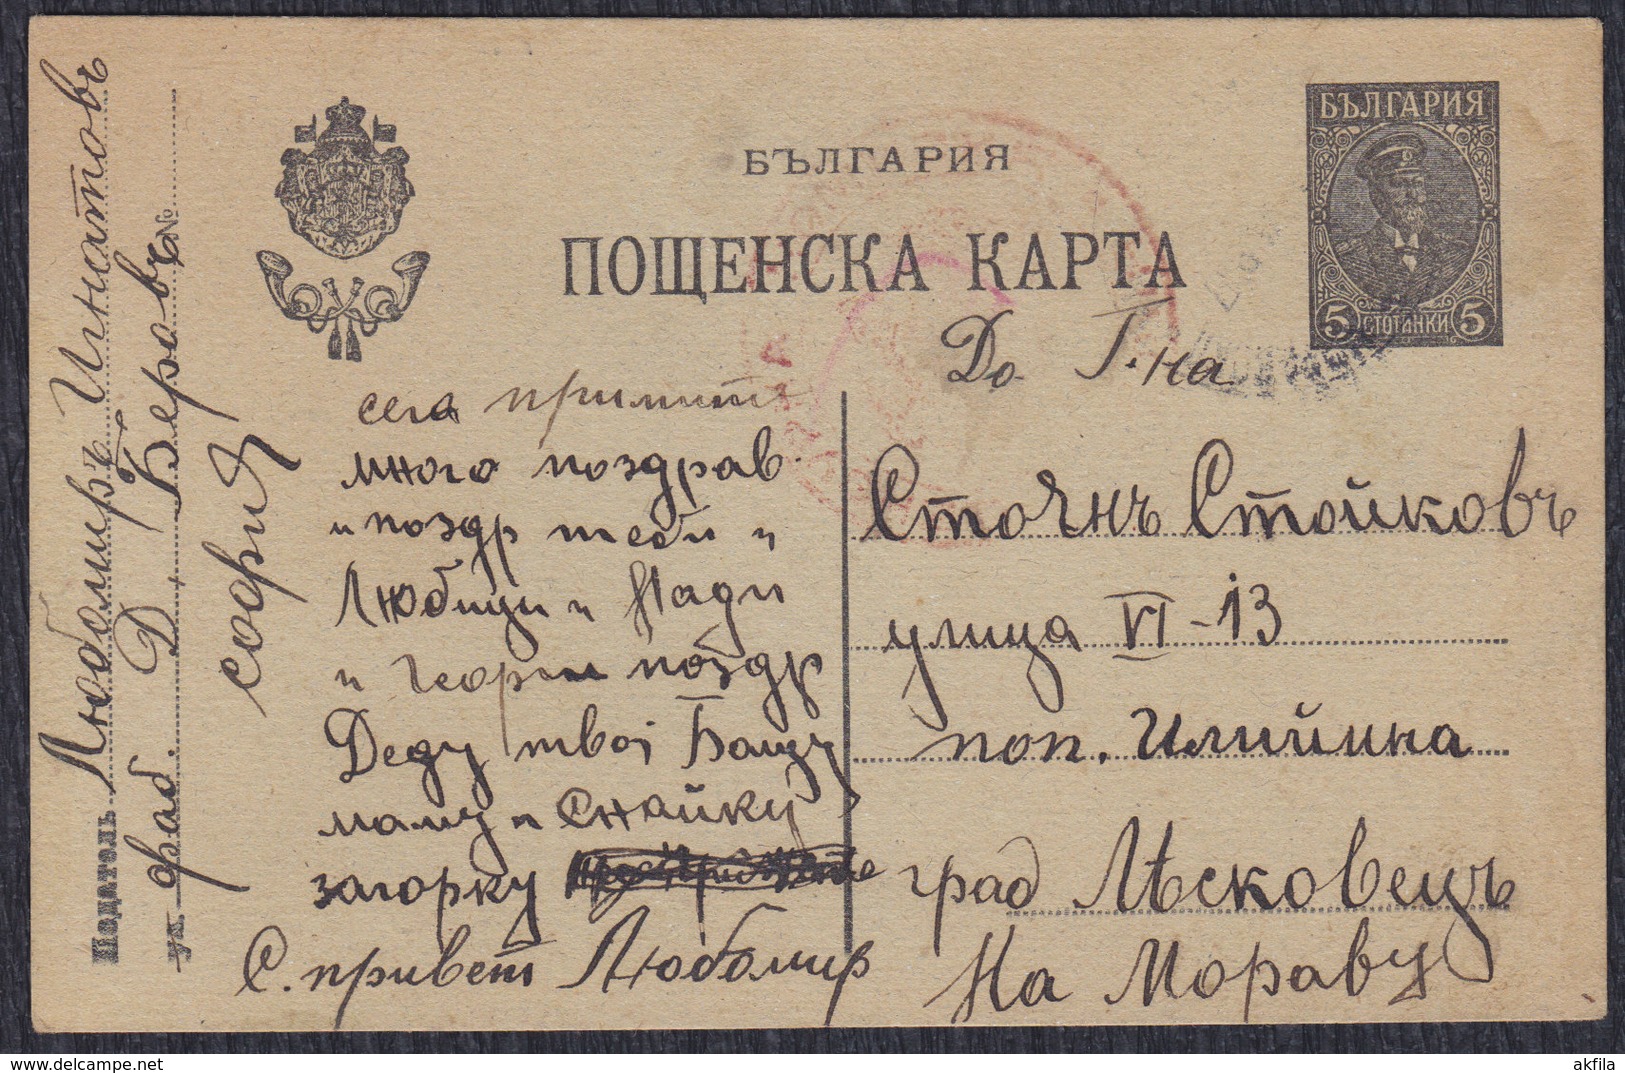 БЪЛГАРИЯ
ПОЩЕНСКА КАРТА
БЪЛГАРИЯ
5 СТОТИНКИ 5
Податель Любомиръ Игнатовъ
ул. фаб. Д. Беровъ №
софия
сега примите
много поздрав.
и поздр теби и
Любици и Нади
и Георги поздр
Деду твоі Бащу
маму и Снайку
загорку
С. привет Любомир
До Г-на
Стоянъ Стойковъ
улица VI-13
поп. Илийина
град Лѣсковецъ
На Мораву
akfila